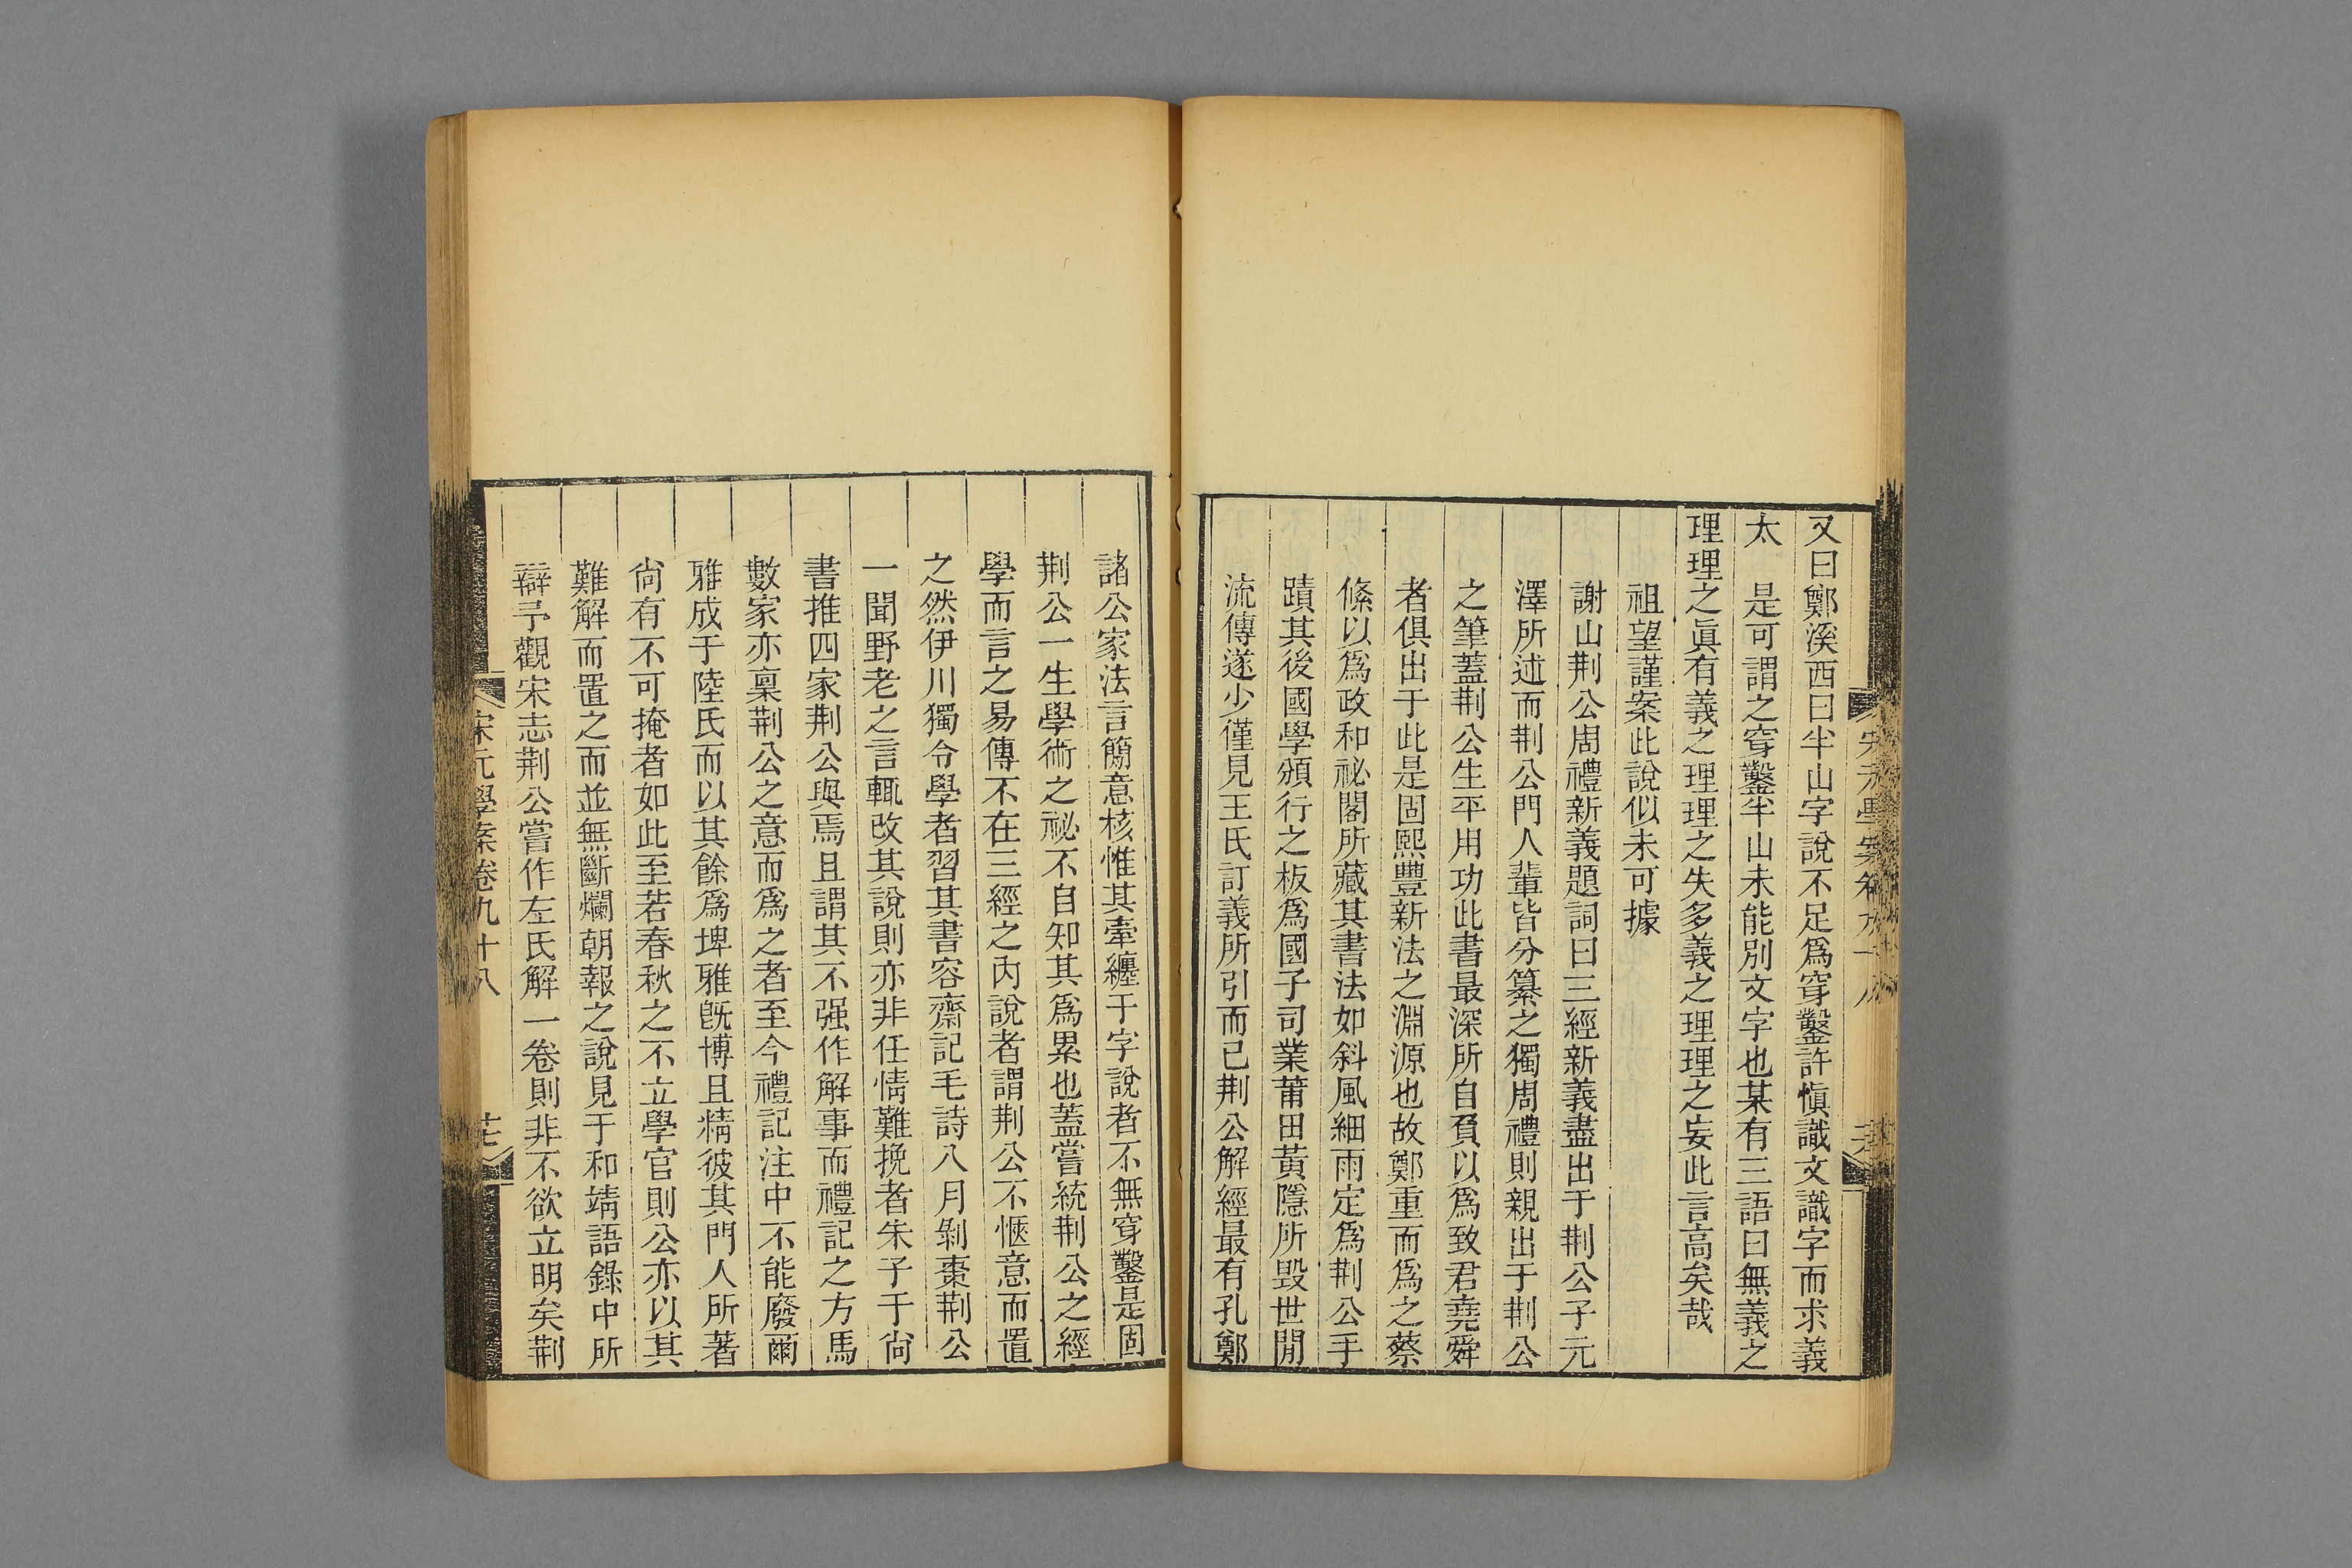 又曰鄭溪西曰半山字說不足爲穿鑿許愼識文識字而求義
太　是可謂之穿鑿半山未能別文字也某有三語曰無義之
理理之眞有義之理理之失多義之理理之妄此言高矣哉
祖望謹案此說似未可據
謝山荆公周禮新義題詞曰三經新義盡出于荆公子元
澤所述而荆公門人輩皆分纂之獨周禮則親出于荆公
之筆蓋荆公生平用功此書最深所自負以爲致君堯舜
者俱出于此是固熙豐新法之淵源也故鄭重而爲之蔡
絛以爲政和祕閣所藏其書法如斜風細雨定爲荆公手
蹟其後國學頒行之板爲國子司業莆田黃隱所毀世閒
流傳遂少僅見王氏訂義所引而已荆公解經最有孔鄭
諸公家法言簡意核惟其牽纏于字說者不無穿鑿是固
荆公一生學術之祕不自知其爲累也蓋嘗統荆公之經
學而言之易傳不在三經之內說者謂荆公不愜意而置
之然伊川獨令學者習其書容齋記毛詩八月剝棗荆公
一聞野老之言輒改其說則亦非任情難挽者朱子于尙
書推四家荆公與焉且謂其不强作解事而禮記之方馬
數家亦稟荆公之意而爲之者至今禮記注中不能廢爾
雅成于陸氏而以其餘爲埤雅旣博且精彼其門人所著
尙有不可掩者如此至若春秋之不立學官則公亦以其
難解而置之而並無斷爛朝報之說見于和靖語錄中所
辯予觀宋志荆公嘗作左氏解一卷則非不欲立明矣荆
宋元學案卷九十八